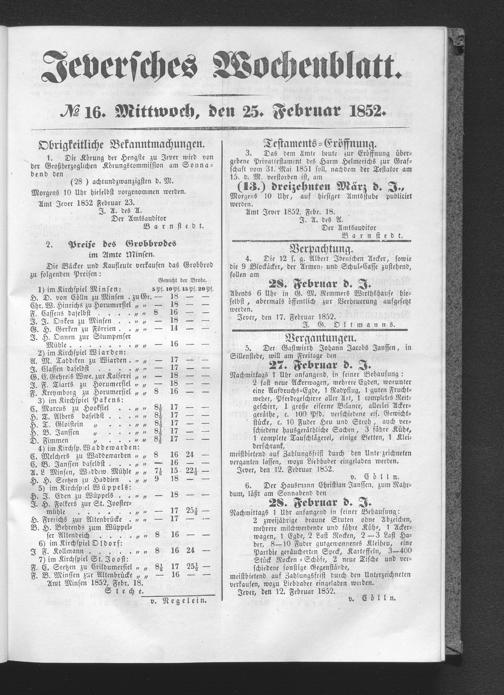 Jeversches Wochenblatt.
№ 16. Mittwoch, den 25. Februar 1852.
Obrigkeitliche Bekanntmachungen.
1. Die Köhrung der Hengste zu Jever wird von
der Großherzoglichen Köhrungscommission am Sonna-
bend den
(28) achtundzwanzigsten d. M.
Morgens 10 Uhr hieselbst vorgenommen werden.
Amt Jever 1852 Februar 23.
J. A. des A.
Der Amtsauditor
Barnstedt.
2. Preise des Grobbrodes
im Amte Minsen.
Die Bäcker und Kaufleute verkaufen das Grobbrod
zu folgenden Preisen:
Gewicht der Brode.
1) im Kirchspiel Minsen:
H. D. von Cölln zu Minsen . zu Gr. — 18 — —
Chr. W. Hinrichs zu Horumersiel „ „ — 18 — —
F. Cassens daselbst . . . . „ „ 8 16 — —
J. J. Onken zu Minsen . . „ „ — 18 — —
G. H. Gerken zu Förrien . . „ „ — 14 — —
J. H. Onnen zur Stumpenser
Mühle . . . . . . . „ „ — 16 — —
2) im Kirchspiel Wiarden:
A. M. Taddiken zu Wiarden . „ „ — 17 — —
J. Classen daselbst . . . . „ „ — 17 — —
J. F. Tiarks zu Horumersiel . „ „ — 18 — —
F. Kreymborg zu Horumersiel „ „ 8 16 — —
3) im Kirchspiel Pakens:
C. Marcus zu Hooksiel . . „ „ 8½ 17 — —
H. T. Albers daselbst . . „ „ 8½ 17 — —
H. T. Gloistein „ . . „ „ 8½ 17 — —
H. B. Janssen „ . . „ „ 8½ 17 — —
D. Fimmen . . . . . . „ „ 8½ 17 — —
4) im Kirchsp. Waddewarden:
C. Melchers zu Waddewarden „ „ 8 16 24 —
C. B. Janssen daselbst . . . „ „ — 16 — —
A. L. Minsen, Waddew. Mühle „ „ 7½ 15 22½ —
H. H. Seetzen zu Haddien . „ „ 9 18 — —
5) im Kirchspiel Wüppels:
H. J. Eden zu Wüppels . . „ „ — 18 — —
J. H. Folkers zur St. Jooster-
mühle . . . . . . . „ „ — 17 25½ —
H. Frerichs zur Altenbrücke . „ „ — 17 — —
B. H. Behrends zum Wüppel-
ser Altendeich . . . . . „ „ 8 16 — —
6) im Kirchspiel Oldorf:
J. F. Kollmann . . . . . „ „ 8 16 24 —
7) im Kirchspiel St. Joost:
F. C. Seetzen zu Grildumersiel „ „ 8½ 17 25½ —
F. B. Minssen zur Altenbrücke „ „ — 16 — —
Amt Minsen 1852, Febr. 18.
Steche.
v. Negelein.
Testaments-Eröffnung.
3. Das dem Amte heute zur Eröffnung über-
gebene Privattestament des Harm Helmerichs zur Graf-
schaft vom 31. Mai 1851 soll, nachdem der Testator am
15. d. M. verstorben ist, am
(13.) dreizehnten März d. J.,
Morgens 10 Uhr, auf hiesiger Amtsstube publicirt
werden.
Amt Jever 1852, Febr. 18.
J. A. des A.
Der Amtsauditor
Barnstedt.
Verpachtung.
4. Die 12 s. g. Albert Ibenschen Aecker, sowie
die 9 Blockäcker, der Armen- und Schul-Casse zustehend,
sollen am
28. Februar d. J.
Abends 6 Uhr in G. M. Remmers Wirthshause hie-
selbst, abermals öffentlich zur Verheuerung aufgesetzt
werden.
Jever, den 17. Februar 1852.
J. G. Oltmanns.
Vergantungen.
5. Der Gastwirth Johann Jacobs Janssen, in
Sillenstede, will am Freitage den
27. Februar d. J.
Nachmittags 1 Uhr anfangend, in seiner Behausung:
2 fast neue Ackerwagen, mehrere Egden, worunter
eine Aufbruchs-Egde, 1 Radpflug, 1 gutes Frucht-
weher, Pferdegeschirre aller Art, 1 completes Reit-
geschirr, 1 große eiserne Balance, allerlei Acker-
geräthe, c. 100 Pfd. verschiedene eis. Gewicht-
stücke, c. 10 Fuder Heu und Stroh, auch ver-
schiedene hausgeräthliche Sachen, 3 fähre Kühe,
1 complete Tauschlägerei, einige Betten, 1 Klei-
derschrank,
meistbietend auf Zahlungsfrist durch den Unterzeichneten
verganten lassen, wozu Liebhaber eingeladen werden.
Jever, den 12. Februar 1852.
v. Cölln.
6. Der Hausmann Christian Janssen, zum Nahr-
dum, läßt am Sonnabend den
28. Februar d. J.
Nachmittags 1 Uhr anfangend, in seiner Behausung:
2 zweijährige braune Stuten ohne Abzeichen,
mehrere milchwerdende und fähre Kühe, 1 Acker-
wagen, 1 Egde, 2 Last Rocken, 2—3 Last Ha-
ber, 8—10 Fuder gutgewonnenes Kleiheu, eine
Parthie geräucherten Speck, Kartoffeln, 3—400
Stück Rocken-Schöfe, 2 neue Tische und ver-
schiedene sonstige Gegenstände,
meistbietend auf Zahlungsfrist durch den Unterzeichneten
verkaufen, wozu Liebhaber eingeladen werden.
Jever, den 12. Februar 1852.
v. Cölln.